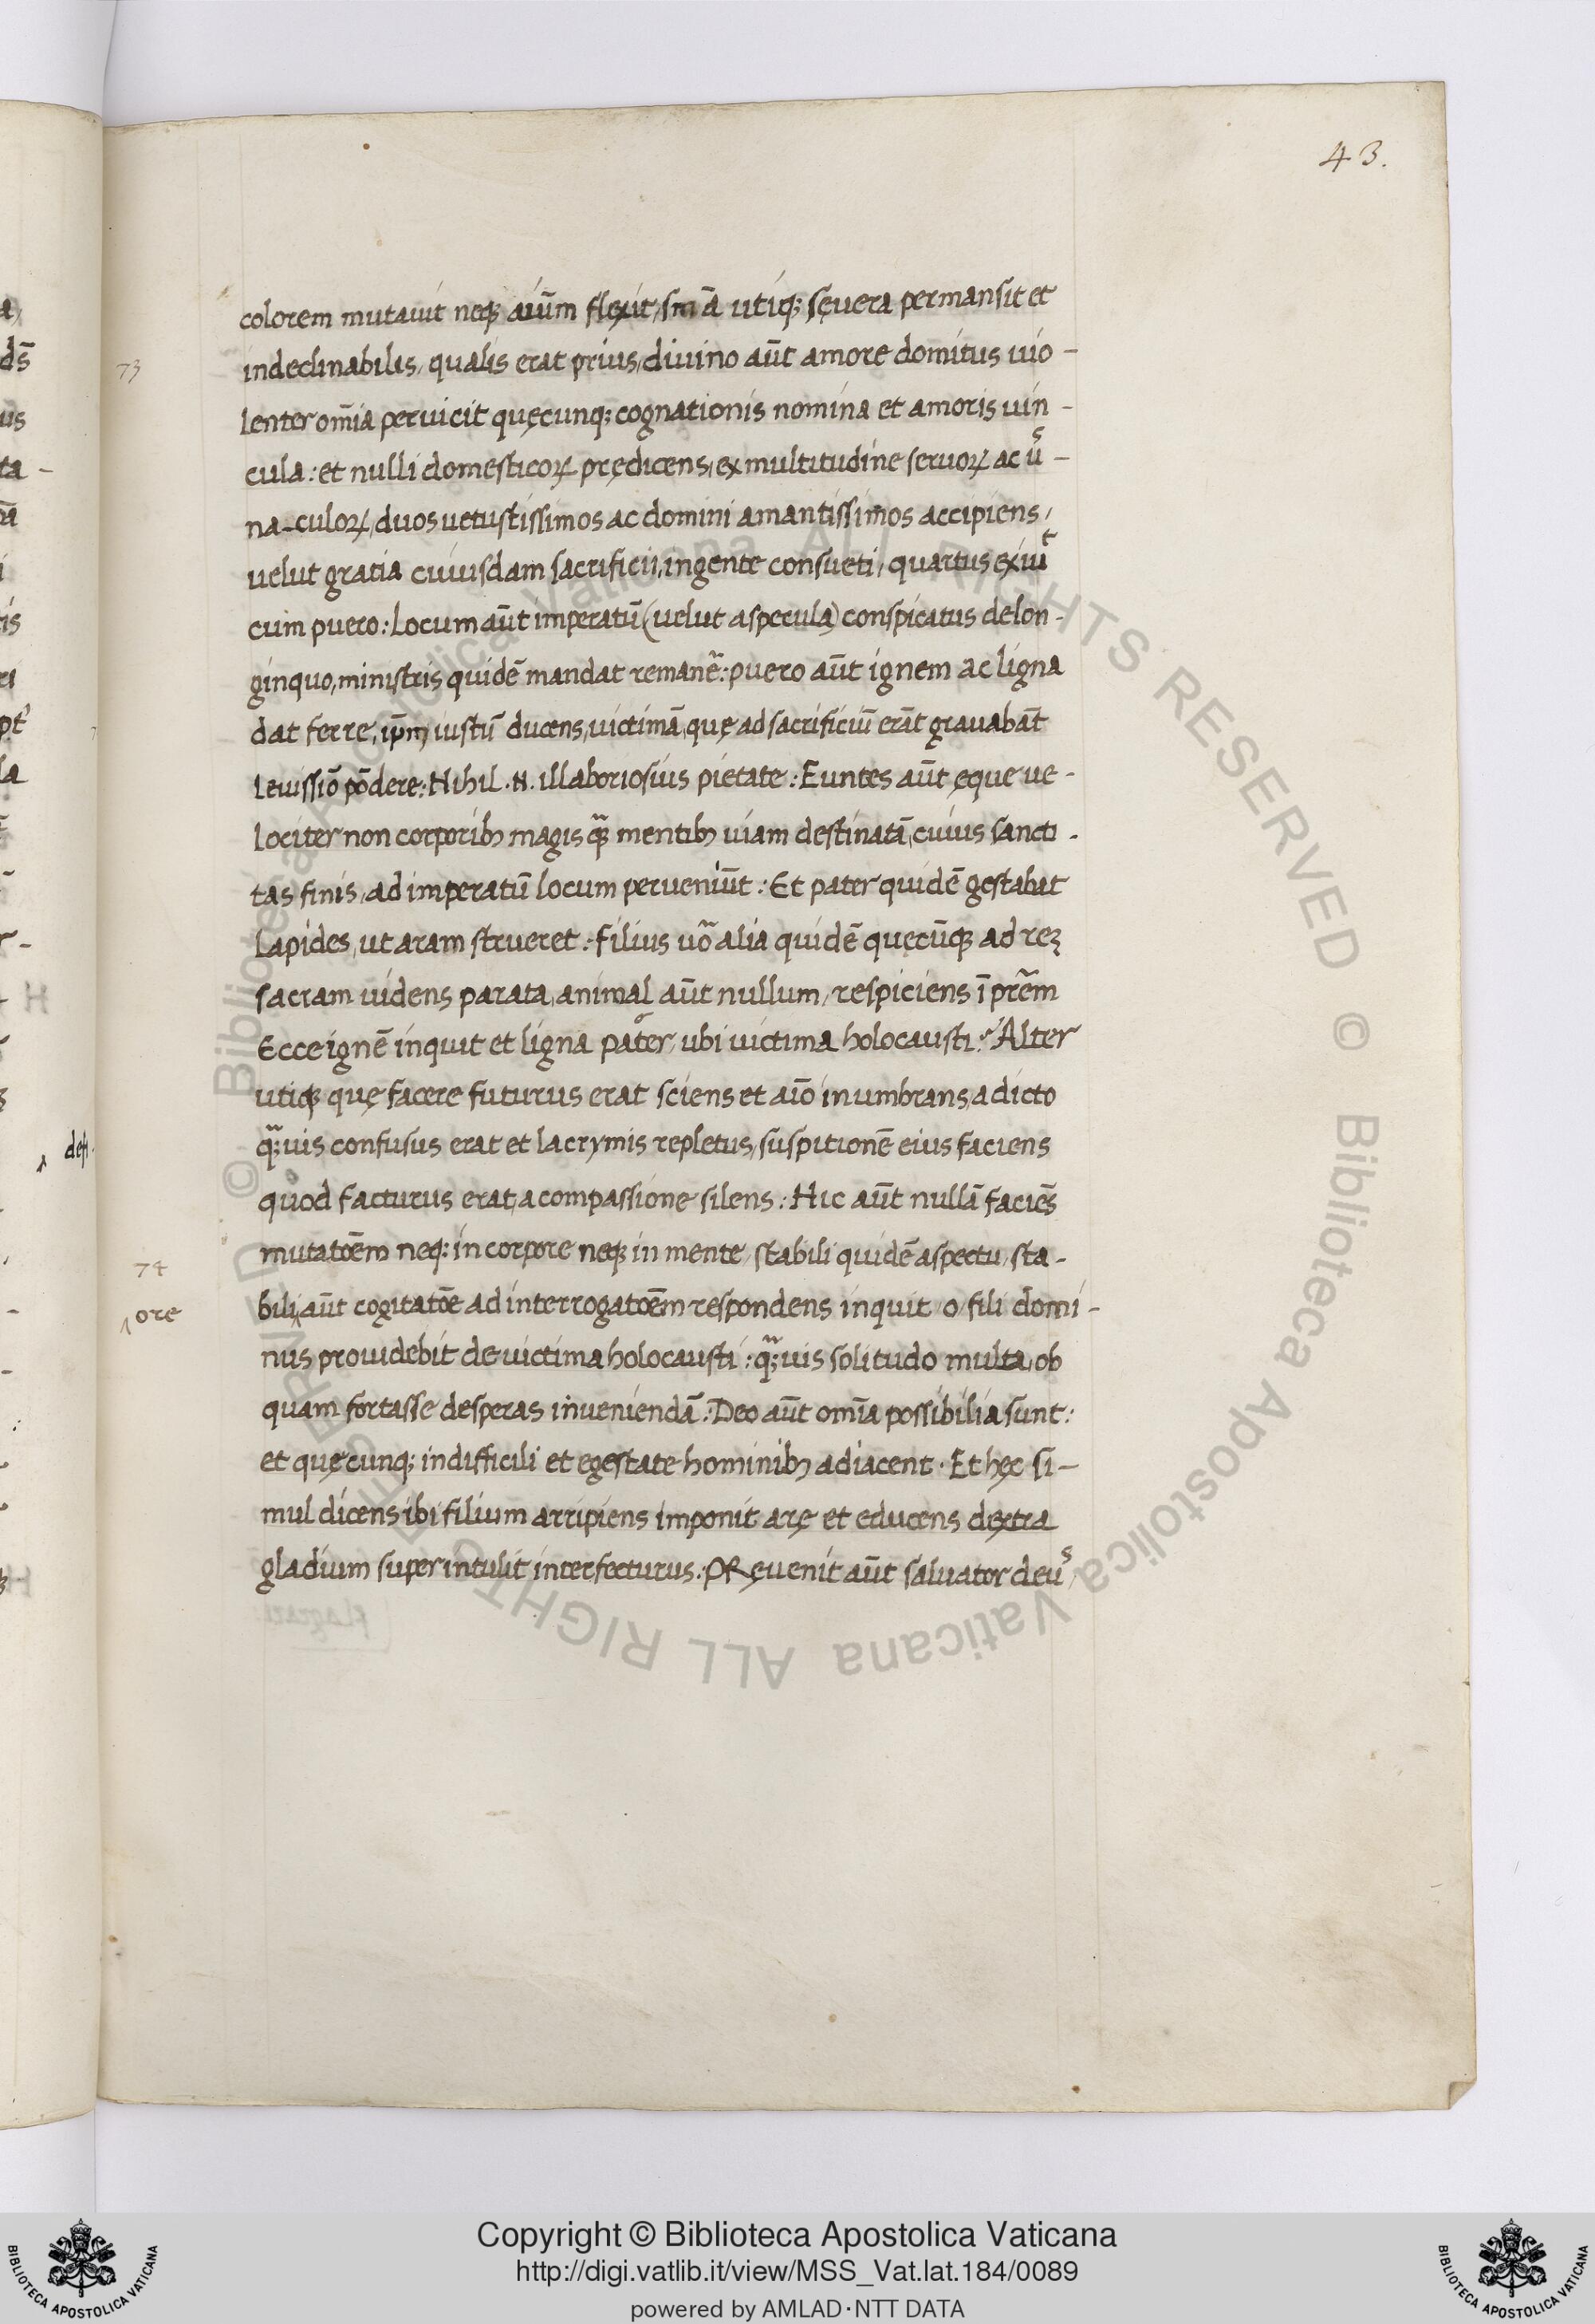 43.
colorem mutauit neq; aíũm flexit, smã utiq; sęvera permansit et
73
indeclinabilis, qualis erat prius, diuino aũt amore domitus uio-
lenter om̃ia peruicit quęcunq; cognationis nomina et amoris uin-
cula: et nulli domesticoꝝ prędicens, ex multitudine seruoꝝ ac us̃-
na-culoꝝ, duos uetustissimos ac domini amantissimos accipiens,
uelut gratia cuiusdam sacrificii, ingente consueti, quartus exiuit
cum puero: Locum aũt imperatũ (uelut a specula) conspicatus de lon-
ginquo, ministris quidẽ mandat remanẽ: puero aũt ignem ac ligna
dat ferre, ip̃m iustũ ducens, uictimã, quę ad sacrificiũ erãt grauabãt
leuissiõ põdere: Nihil .N. illaboriosius pietate: Euntes aũt ęque ue-
lociter non corporibꝫ magis q̃ꝫ mentibꝫ uiam destinatã, cuius sancti-
tas finis, ad imperatũ locum perueniũt: Et pater quidẽ gestabat
lapides, ut aram strueret: filius uõ alia quidẽ quęcũq; ad reꝫ
sacram uidens parata, animal aũt nullum, respiciens ĩ prẽm
Ecce ignẽ inquit et ligna pater, ubi uictima holocausti? Alter
utiq; quę facere futurus erat sciens et aĩo inumbrans, a dicto
q̃ꝫuis confusus erat et lacrymis repletus, suspitionẽ eius faciens
quod facturus erat, a compassione silens: Hic aũt nullã faciẽs
mutatõem neq; in corpore neq; in mente, stabili quidẽ aspectu, sta-
74
bili aũt cogitatõe ad interrogatõem respondens inquit, o fili domi-
ore
nus prouidebit de uictima holocausti: q̃ꝫuis solitudo multa, ob
quam fortasse desperas inueniendã: Deo aũt om̃ia possibilia sunt:
et quęcunq; in difficili et egestate hominibꝫ adiacent. Et hęc si-
mul dicens ibi filium arripiens imponit arę et educens dextra
gladium super intulit interfecturus. PRęuenit aũt saluator deus
desi.
Copyright © Biblioteca Apostolica Vaticana
http://digi.vatlib.it/view/MSS_Vat.lat.184/0089
powered by AMLAD·NTT DATA
BIBLIOTECA APOSTOLICA VATICANA
BIBLIOTECA APOSTOLICA VATICANA
© Biblioteca Apostolica Vaticana ALL RIGHTS RESERVED © Biblioteca Apostolica Vaticana ALL RIGHTS RESERVED